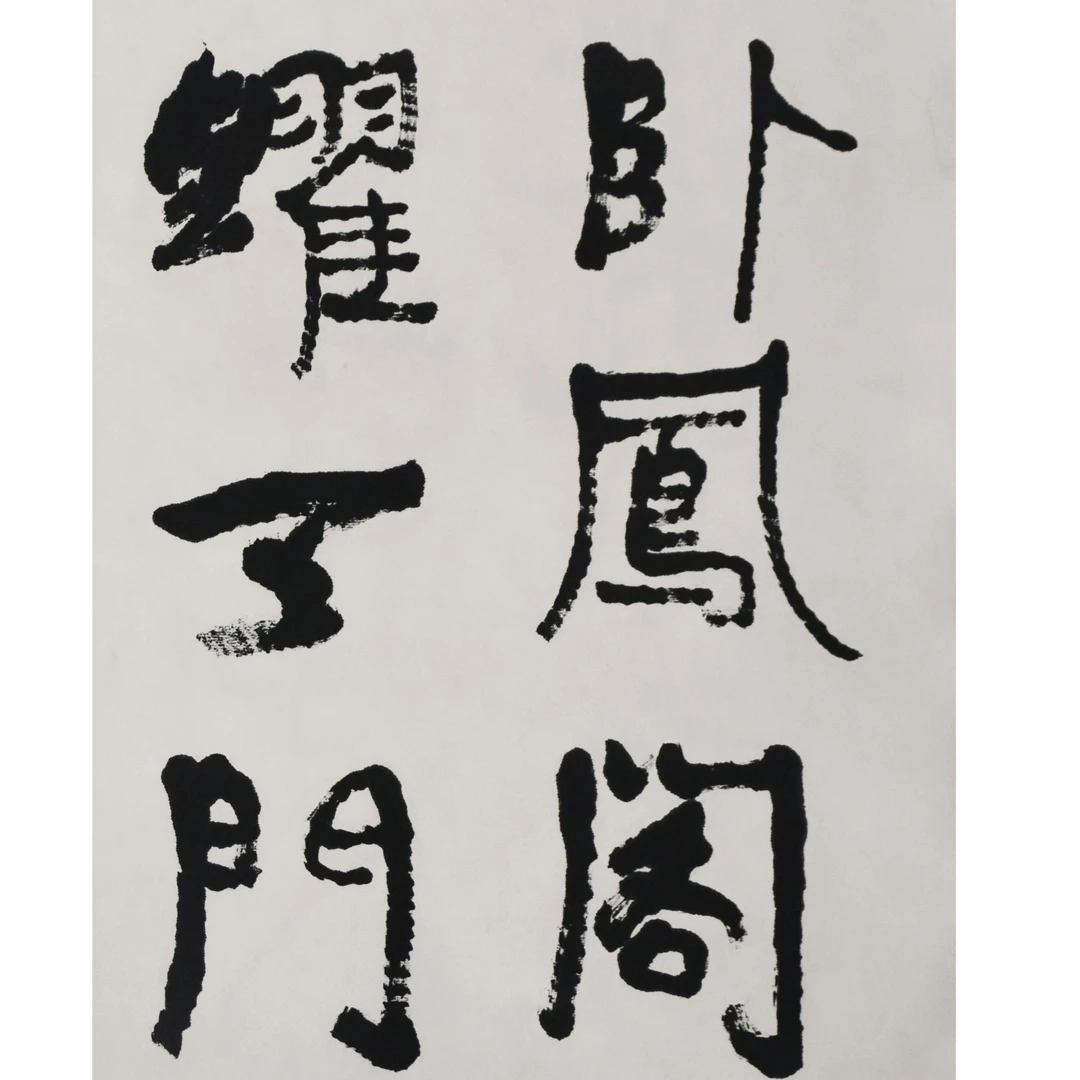 卧鳳閣
躍天門